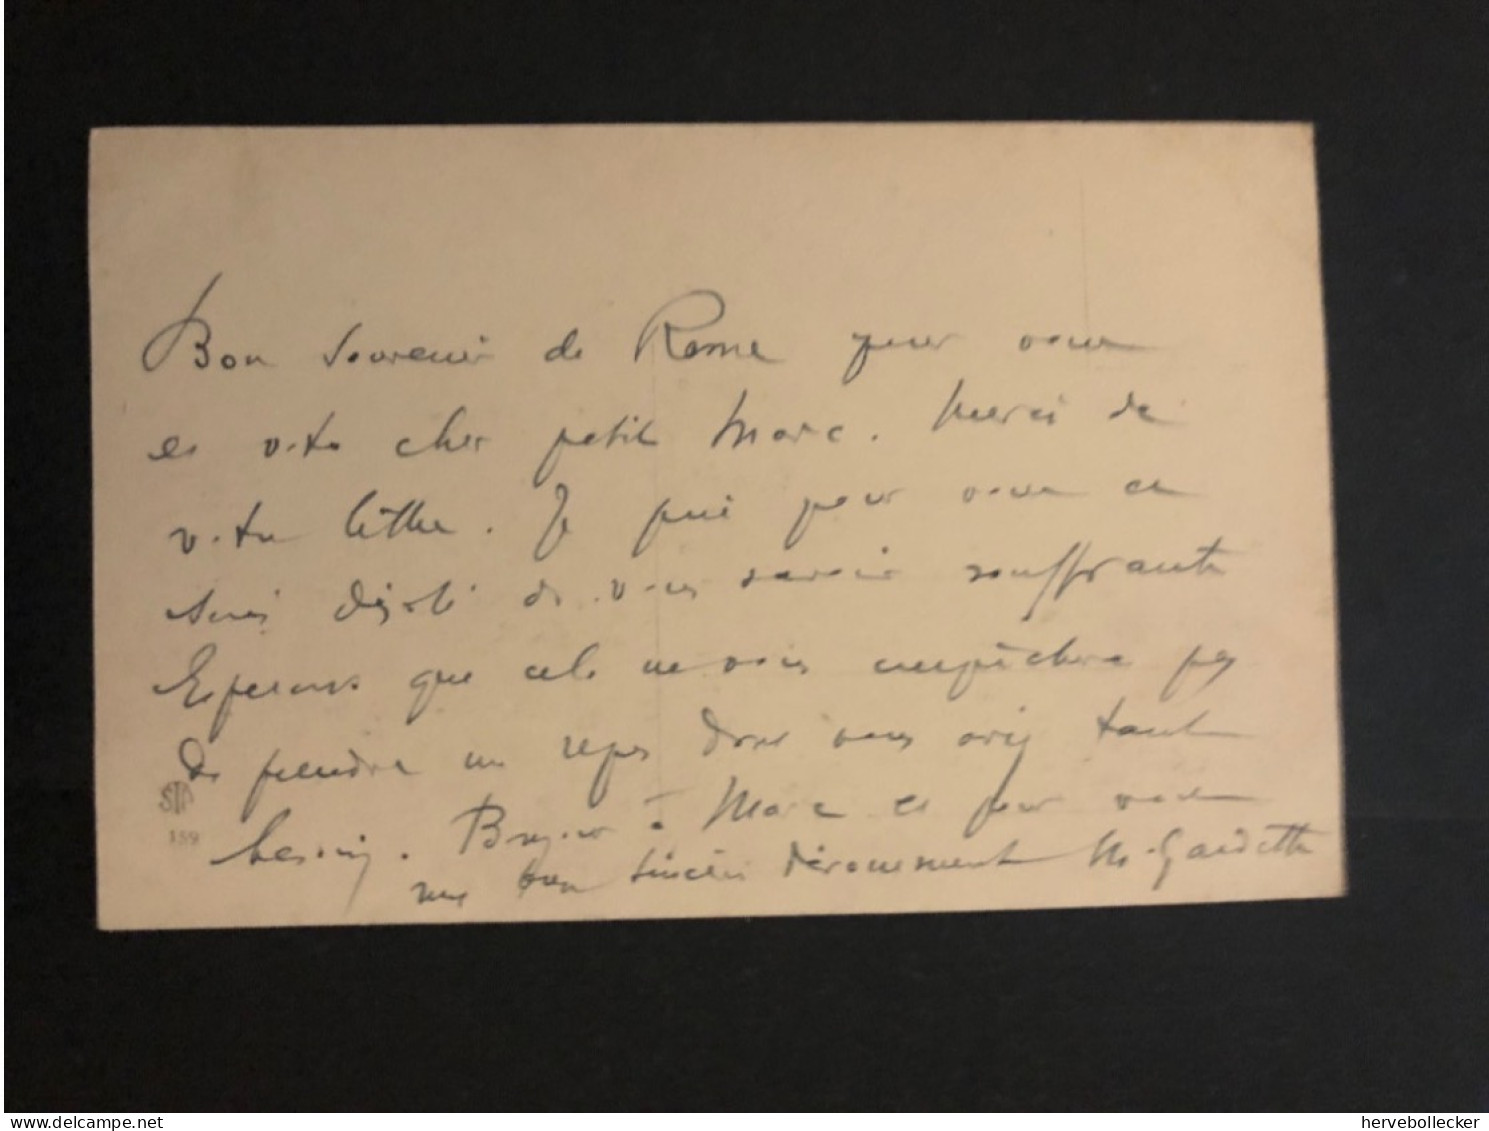 Bon souvenir de Rome pour vous
et votre cher petit Marc. Merci de
votre lettre. Je prie pour vous et
suis désolé de vous savoir souffrante
Esperons que cela ne vous empêchera pas
de prendre un repos dont vous avez tant
besoin. Bonjour à Marc et pour vous
mes bien sincère dévouement M. Gardette
STA
159
www.delcampe.net
hervebollecker